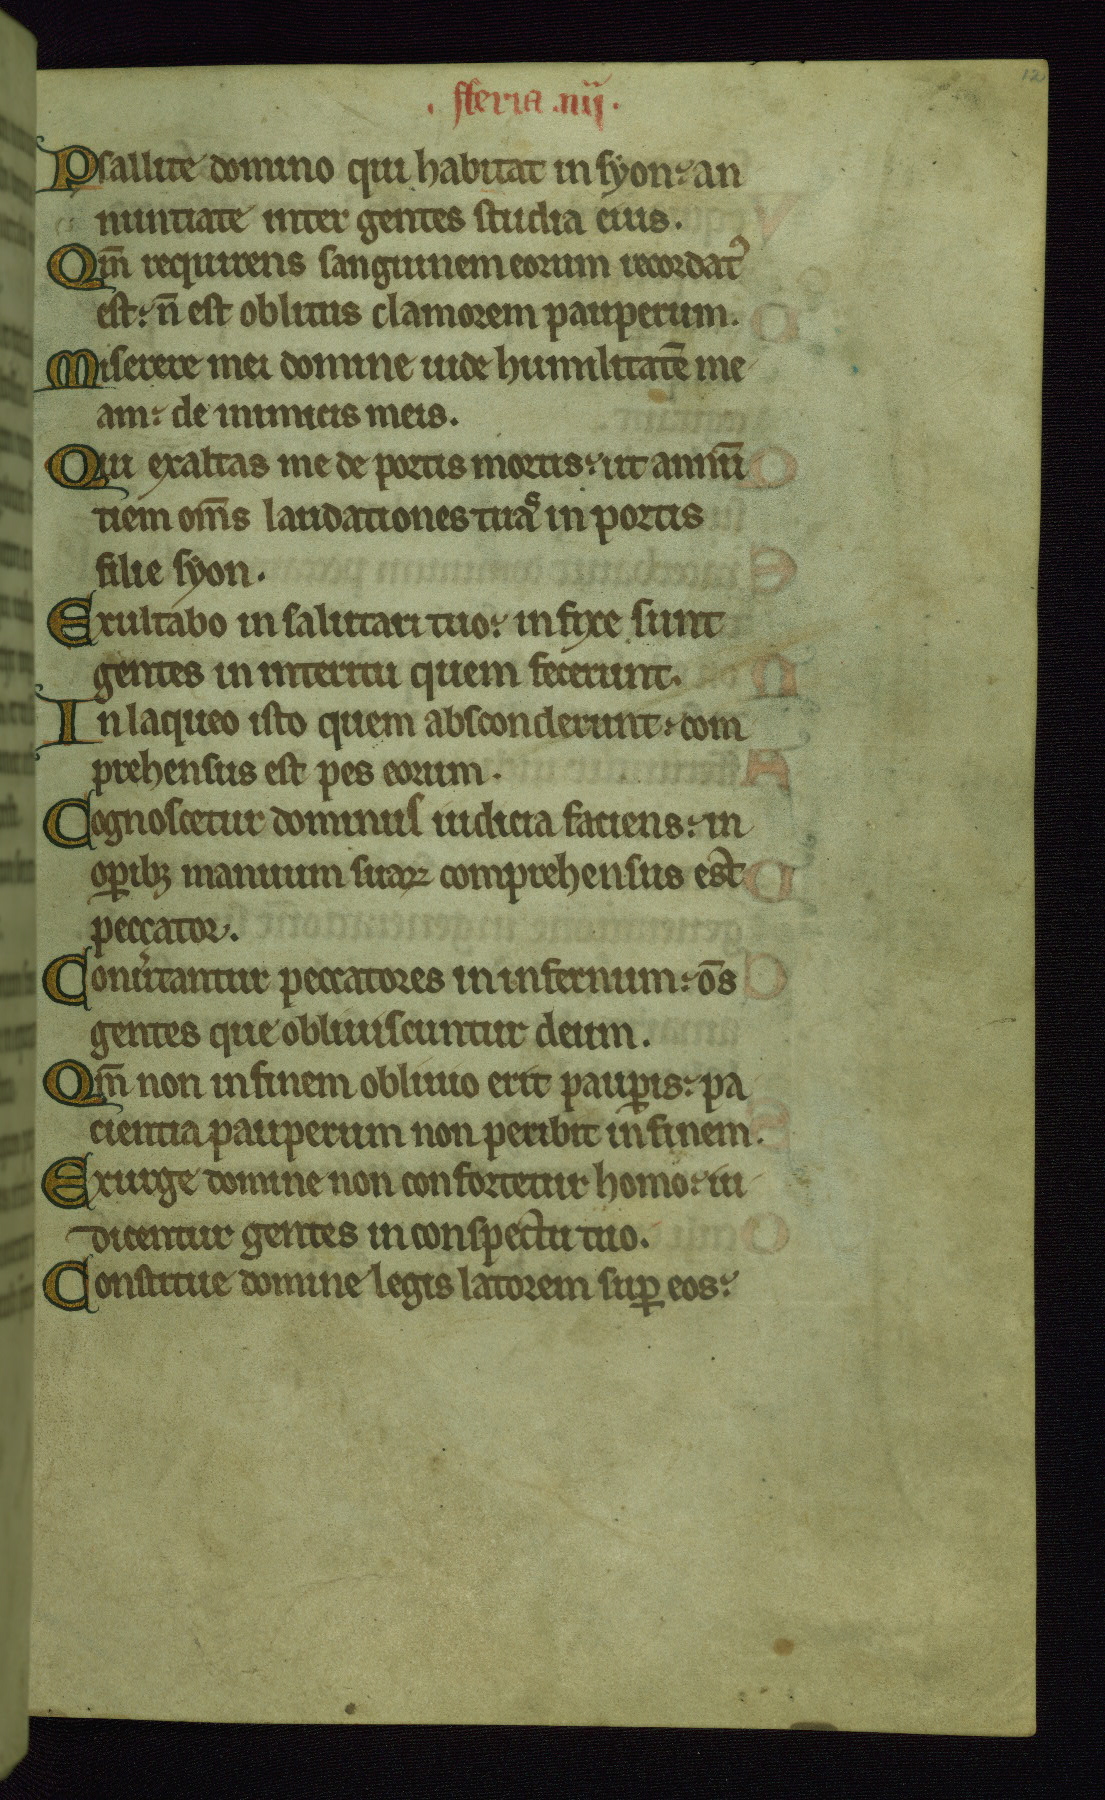 12
. fferia .iiij.
Psallite domino qui habitat in syon: an
nuntiate inter gentes studia eius.
Qm̄ requirens sanguinem eorum recordat᷑
est: n̄ est oblitus clamorem pauperum.
Miserere mei domine uide humilitatē me
am: de inimicis meis.
Qui exaltas me de portis mortis: ut annū
tiem om̄s laudationes tuas in portis
filie syon.
Exultabo in salutari tuo: infixe sunt
gentes in interitu quem fecerunt.
In laqueo isto quem absconderunt: com
prehensus est pes eorum.
Cognoscetur dominus iudicia faciens: in
oꝑibꝫ manuum suaꝝ comprehensus est
peccator.
Conu͛tantur peccatores in infernum: om̄s
gentes que obliuiscuntur deum.
Qm̄ non in finem obliuio erit pauꝑis: pa
cientia pauperum non peribit in finem.
Exurge domine non confortetur homo: iu
dicentur gentes in conspectu tuo.
Constitue domine legis latorem suꝑ eos: